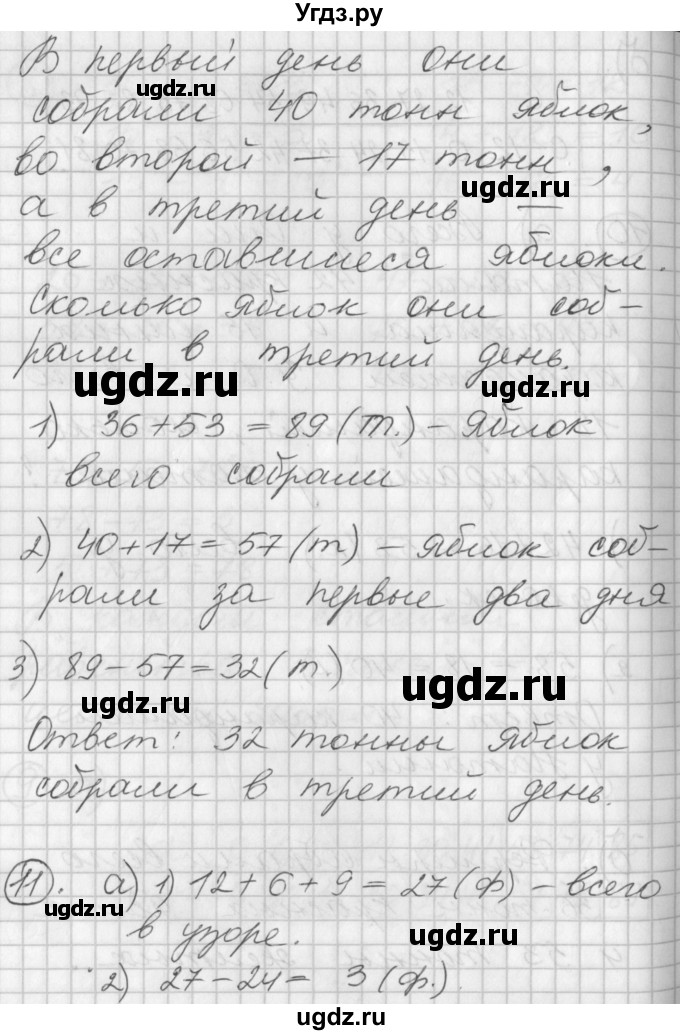 Угдз.ру
В первый день они
ugdz.ru
собрали 40 тонн яблок,
во второй – 17 тонн,
ugdz.ru
а в третий день –
все оставшиеся яблоки.
Сколько яблок они соб-
рали в третий день.
ugdz.ru
1) 36+53 = 89 (т.) – яблок
всего собрали
ugdz.ru
2) 40+17 = 57 (т) – яблок соб-
рали за первые два дня
3) 89-57 = 32 (т.)
ugdz.ru
ugdz.ru
Ответ: 32 тонны яблок
собрали в третий день.
ugdz.ru
11. а) 1) 12+6+9 = 27 (ф) – всего
ugdz.ru
в узоре.
ugdz.ru
2) 27-24 = 3 (ф.)
ugdz.ru